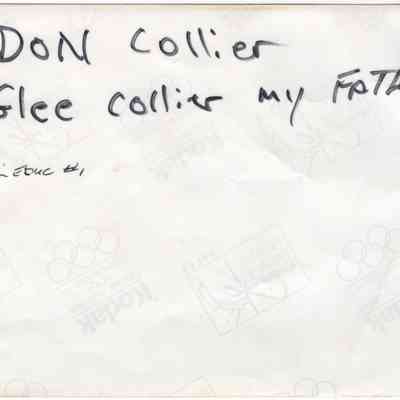 DON Collier
Glee collier my FATH
#1
Kodak
Kodak